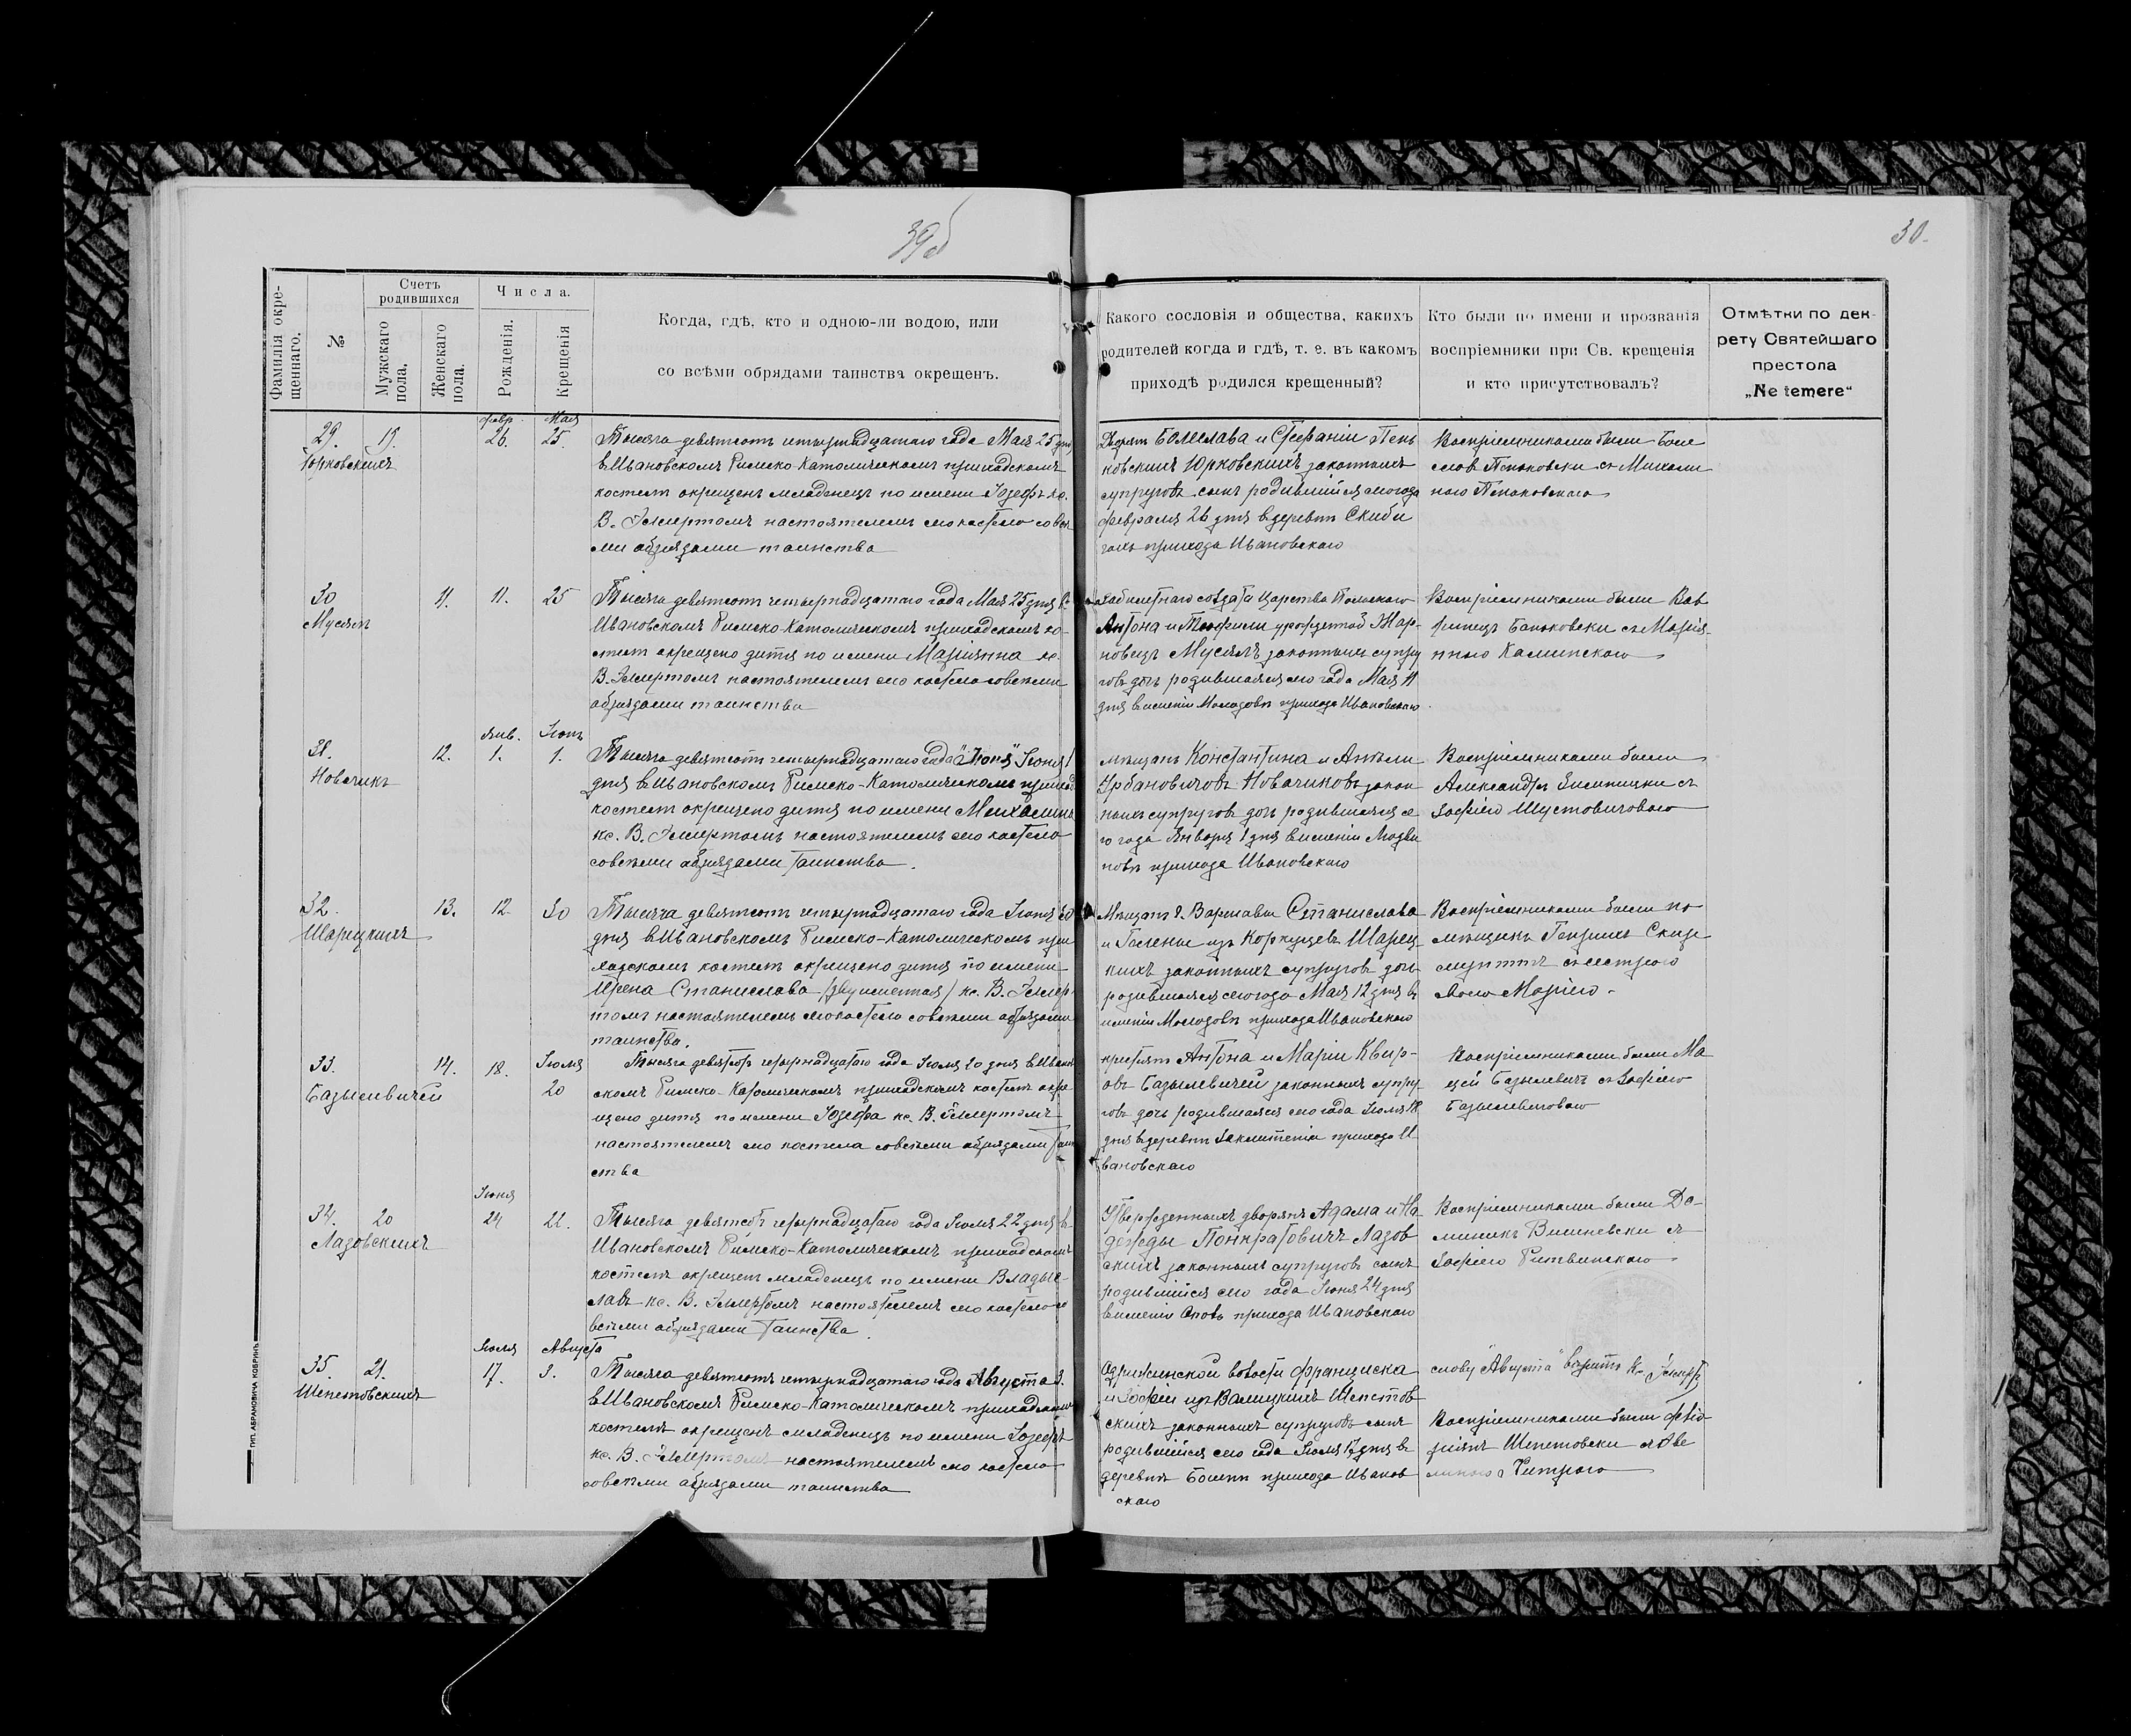 39об
30.
Фамилія окре-
щеннаго.
№
Счетъ
родившихся
Мужскаго
пола.
Женскаго
пола.
Числа.
Рожденія.
Крещенія
Когда, гдѣ, кто и одною-ли водою, или
со всѣми обрядами таинства окрещенъ.
Какого сословія и общества, какихъ
родителей когда и гдѣ, т. е. въ какомъ
приходѣ родился крещенный?
Кто были по имени и прозванія
воспріемники при Св. крещенія
и кто присутствовалъ?
Отмѣтки по дек-
рету Святейшаго
престола
„Ne temere“
29. 19. февр. 26. Мая 25.
Юрковскихъ
Тысяча девятьсотъ четырнадцатаго года Мая 25 дня
въ Ивановскомъ Римско-Католическомъ приходскомъ
костелѣ окрещенъ младенецъ по имени Іозефъ кс.
В. Гелмертомъ настоятелемъ сего костела со всѣ-
ми обрядами таинства
Дворянъ Болеслава и Стефаніи Пень
ковскихъ Юрковскихъ законныхъ
супруговъ сынъ родившійся сего года
февраля 26 дня въ деревнѣ Скиби
чахъ прихода Ивановскаго
Воспріемниками были Боле
славъ Пеньковски съ Михали
ною Пеньковскаго
30 11. 11. 25
Мусялъ
Тысяча девятьсотъ четырнадцатаго года Мая 25 дня въ
Ивановскомъ Римско-Католическомъ приходскомъ ко-
стелѣ окрещено дитя по имени Маріянна кс.
В. Гелмертомъ настоятелемъ сего костела со всѣми
обрядами таинства
солдата Царства Польскаго
Антона и Теофили урожденной Жар-
новецъ Мусялъ законныхъ супру
говъ дочь родившаяся сего года Мая 11
дня въ имѣніи Молодовѣ прихода Ивановскаго.
Воспріемниками были Вав
ринецъ Баньковски съ Марія-
нною Калинскаго
31. 12. Янв. 1. Іюнь 1.
Новачикъ
Тысяча девятьсотъ четырнадцатаго года "Іюня" Іюня 1
дня въ Ивановскомъ Римско-Католическомъ приход
костелѣ окрещено дитя по имени Михалина
кс. В. Гелмертомъ настоятелемъ сего костела
со всѣми обрядами таинства.
мѣщанъ Константина и Анели
Урбановичовъ Новачиковъ закон
ныхъ супруговъ дочь родившаяся се
го года Января 1 дня въ имѣніи
прихода Ивановскаго
Воспріемниками были
Александръ съ
Зофіею Шустовичовою
32. 13. 12 30
Шарецкихъ
Тысяча девятьсотъ четырнадцатаго года Іюня 30
дня въ Ивановскомъ Римско-Католическомъ при
ходскомъ костелѣ окрещено дитя по имени
Ирена Станислава /двуименная/ кс. В. Гелмер-
томъ настоятелемъ сего костела со всѣми обрядами
таинства.
Мѣщанъ г. Варшавы Станислава
и Галены изъ Шарец-
кихъ законныхъ супруговъ дочь
родившаяся сего года Мая 12 дня въ
имѣніи Молодовѣ прихода Ивановскаго
Воспріемниками были по
мѣщикъ Генрихъ Скир
мунттъ съ сестрою
своею Маріею.
33. 14. 18. Іюля 20
Базылевичей
Тысяча девятьсотъ четырнадцатаго года Іюля 20 дня въ Иванов
скомъ Римско-Католическомъ приходскомъ костелѣ окре
щено дитя по имени Іозефа кс. В. Гелмертомъ
настоятелемъ сего костела со всѣми обрядами таин
ства
крестьянъ Антона и Маріи Квир-
овъ Базылевичей законныхъ супру-
говъ дочь родившаяся сего года Іюля 18
дня въ деревнѣ прихода И
вановскаго
Воспріемниками были Ма
цей Базылевичъ съ Зофіею
Базылевичовою
34. 20 Іюня 24 22.
Лазовскихъ
Тысяча девятьсотъ четырнадцатаго года Іюля 22 дня въ
Ивановскомъ Римско-Католическомъ приходскомъ
костелѣ окрещенъ младенецъ по имени Владис-
лавъ кс. В. Гелмертомъ настоятелемъ сего костела со
всѣми обрядами таинства.
Утвержденныхъ дворянъ Адама и На-
дежды Понкратовичъ Лазов
скихъ законныхъ супруговъ сынъ
родившійся сего года Іюня 24 дня
въ имѣніи прихода Ивановскаго
Воспріемниками были До-
миникъ Вишневски съ
Зофіею
35. 21. Іюля 17. Августа 3.
Шепетовскихъ
Тысяча девятьсотъ четырнадцатаго года Августа 3.
въ Ивановскомъ Римско-Католическомъ приходскомъ
костелѣ окрещенъ младенецъ по имени Іозефъ
кс. В. Гелмертомъ настоятелемъ сего костела
со всѣми обрядами таинства
Одрижинской волости Франциска
и Зофіи изъ Валицкихъ Шепетов
скихъ законныхъ супруговъ сынъ
родившійся сего года Іюля 17 дня въ
деревнѣ прихода Иванов
скаго
слову "Августа" вѣрить Кс.
Воспріемниками были Фло-
ріянъ Шепетовски съ
Тип. Абрановича Кобринъ